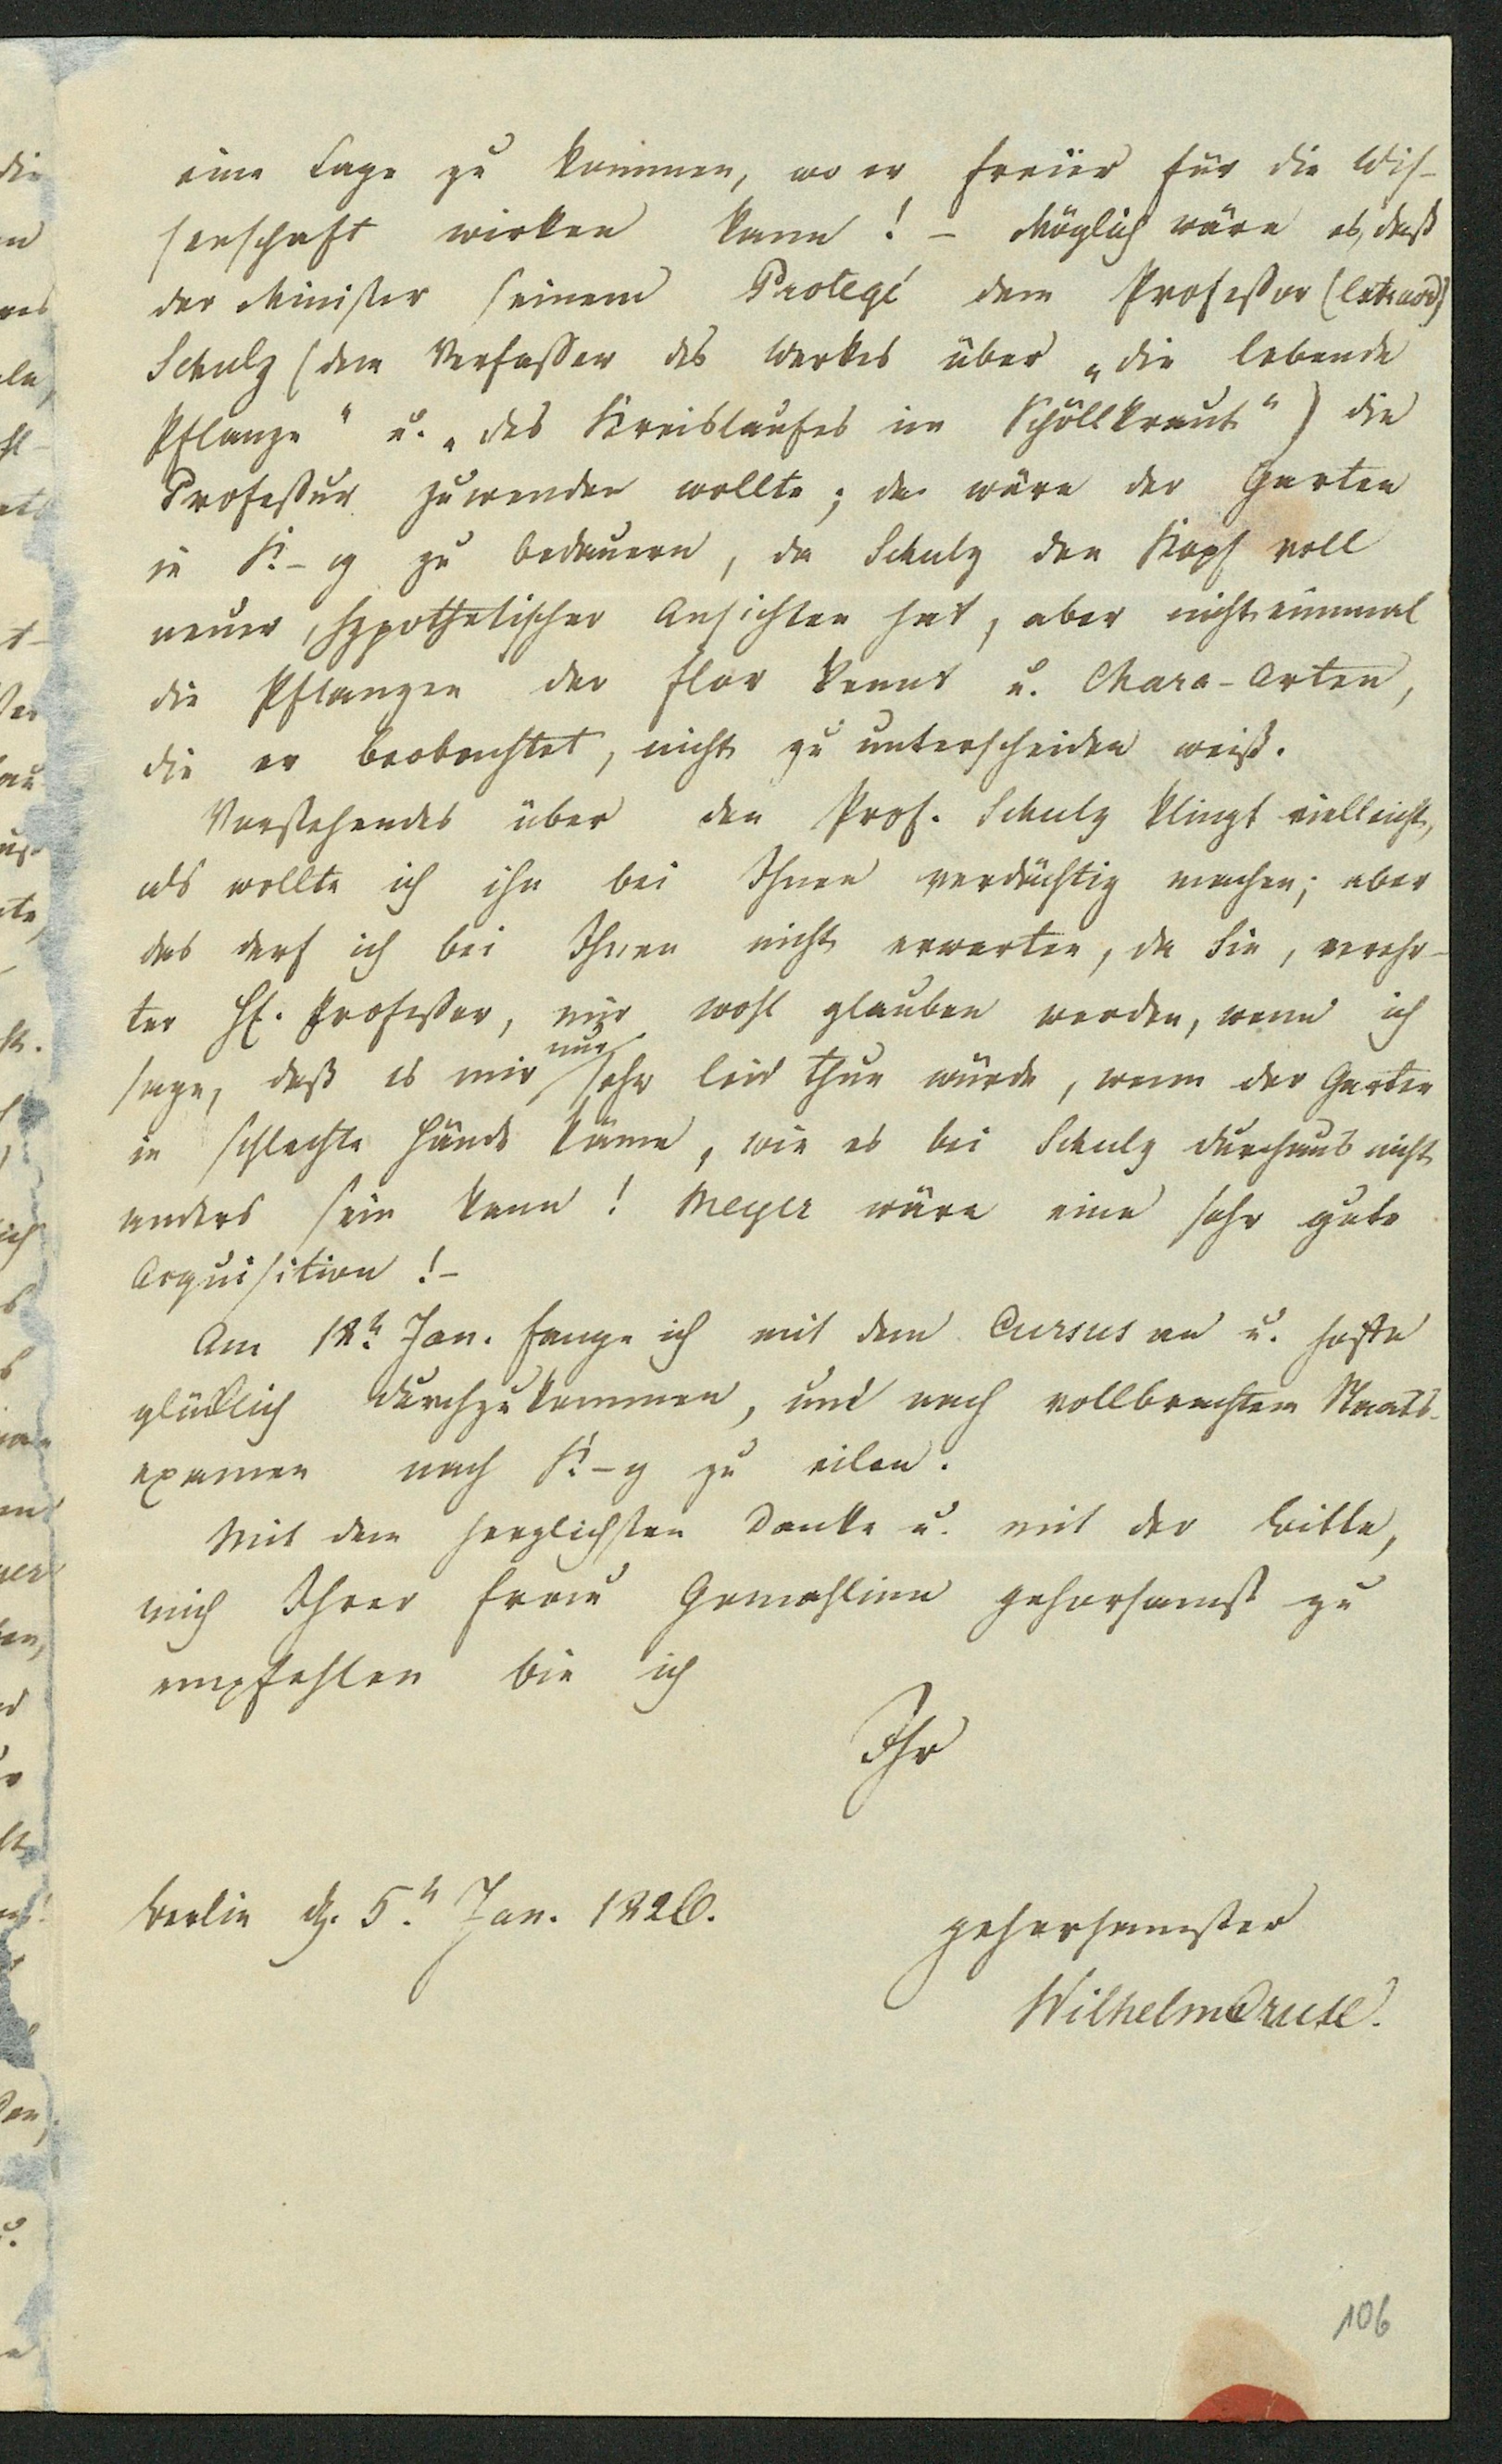 eine Lage zu kommen, wo er freier für die Wis-
senschaft wirken kann! – Möglich wäre es, daß
der Minister seinem Protegé dem Professor (Extraord)
Schulz (dem Verfasser des Werkes über „die lebende
Pflanze" u. „des Kreislaufes im Schöllkraut") die
Professur zuwenden wollte; da wäre der Garten
in K–g zu bedauern, da Schulz den Kopf voll
neuer, hypothetischer Ansichten hat, aber nicht einmal
die Pflanzen der Flor kennt u. Chara-Arten,
die er beobachtet, nicht zu unterscheiden weiß.
Vorstehendes über den Prof. Schulz klingt vielleicht,
als wollte ich ihn bei Ihnen verdächtig machen; aber
das darf ich bei Ihnen nicht erwarten, da Sie, verehr-
ter H. Professor, mir wohl glauben werden, wenn ich
sage, daß es mir nur sehr leid thun würde, wenn der Garten
in schlechte Hände käme, wie es bei Schulz durchaus nicht
anders sein kann! Meyer wäre eine sehr gute
Acquisition! –
Am 12n Jan. fange ich mit dem Cursus an u. hoffe
glücklich durchzukommen, und nach vollbrachtem Staats-
examen nach K–g zu eilen.
Mit dem herzlichsten Danke u. mit der Bitte,
mich Ihrer Frau Gemahlinn gehorsamst zu
empfehlen bin ich
Ihr
Berlin d. 5n Jan. 1826.
gehorsamster
Wilhelm Cruse.
106